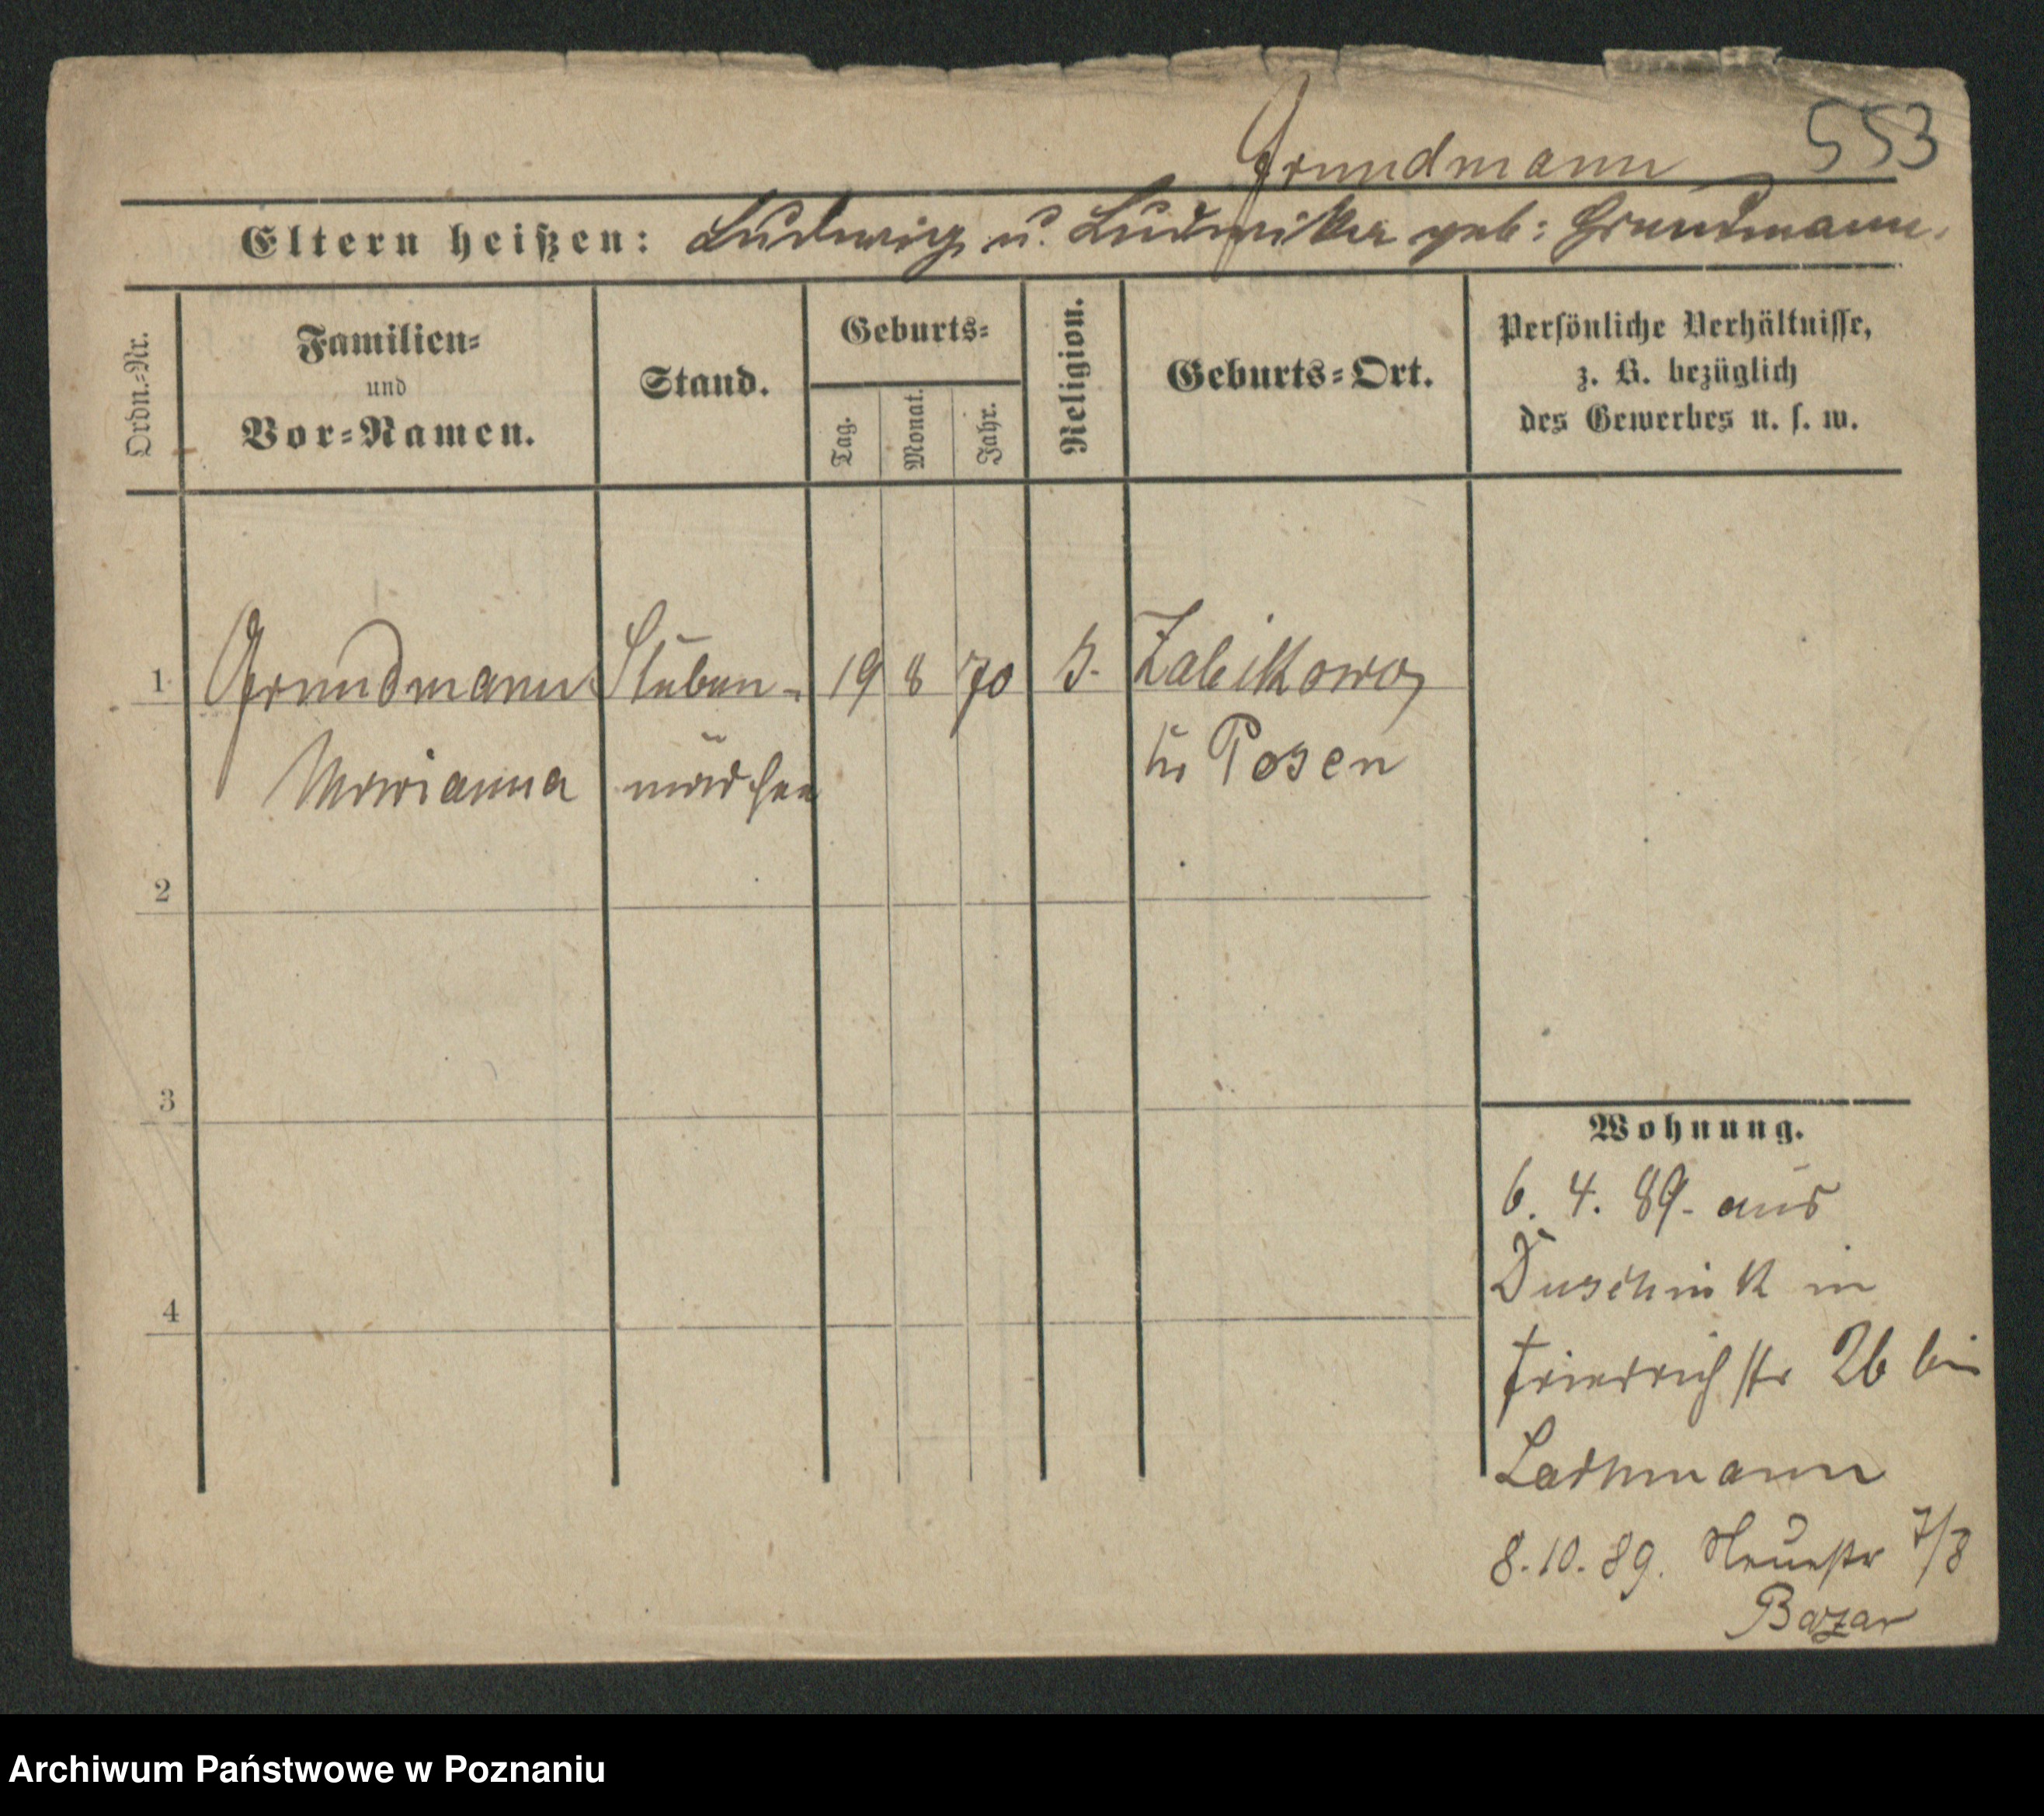 Grundmann 553
Eltern heißen: Ludwig u. Ludwika geb: Grundmann.
Ordn.-Nr.
Familien-
und
Vor-Namen.
Stand.
Geburts-
Tag.
Monat.
Jahr.
Religion.
Geburts-Ort.
Persönliche Verhältnisse,
z. B. bezüglich
des Gewerbes u. s. w.
1 Grundmann Stuben- 19 8 70 Zabikowo
Marianna mädchen Posen
2
3
4
Wohnung.
6. 4. 89. aus
Duschnik in
Friedrichstr 26 bei
Lachmann
8.10.89. Neuestr 7/8
Bazar
Archiwum Państwowe w Poznaniu